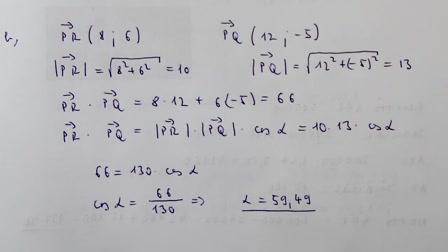 b, PR⃗ (8 ; 6) PQ⃗ (12 ; -5)
|PR⃗| = √(8² + 6²) = 10 |PQ⃗| = √(12² + (-5)²) = 13
PR⃗ · PQ⃗ = 8 · 12 + 6(-5) = 66
PR⃗ · PQ⃗ = |PR⃗| · |PQ⃗| · cos α = 10 · 13 · cos α
66 = 130 · cos α
cos α = 66/130 ⇒ α = 59,49